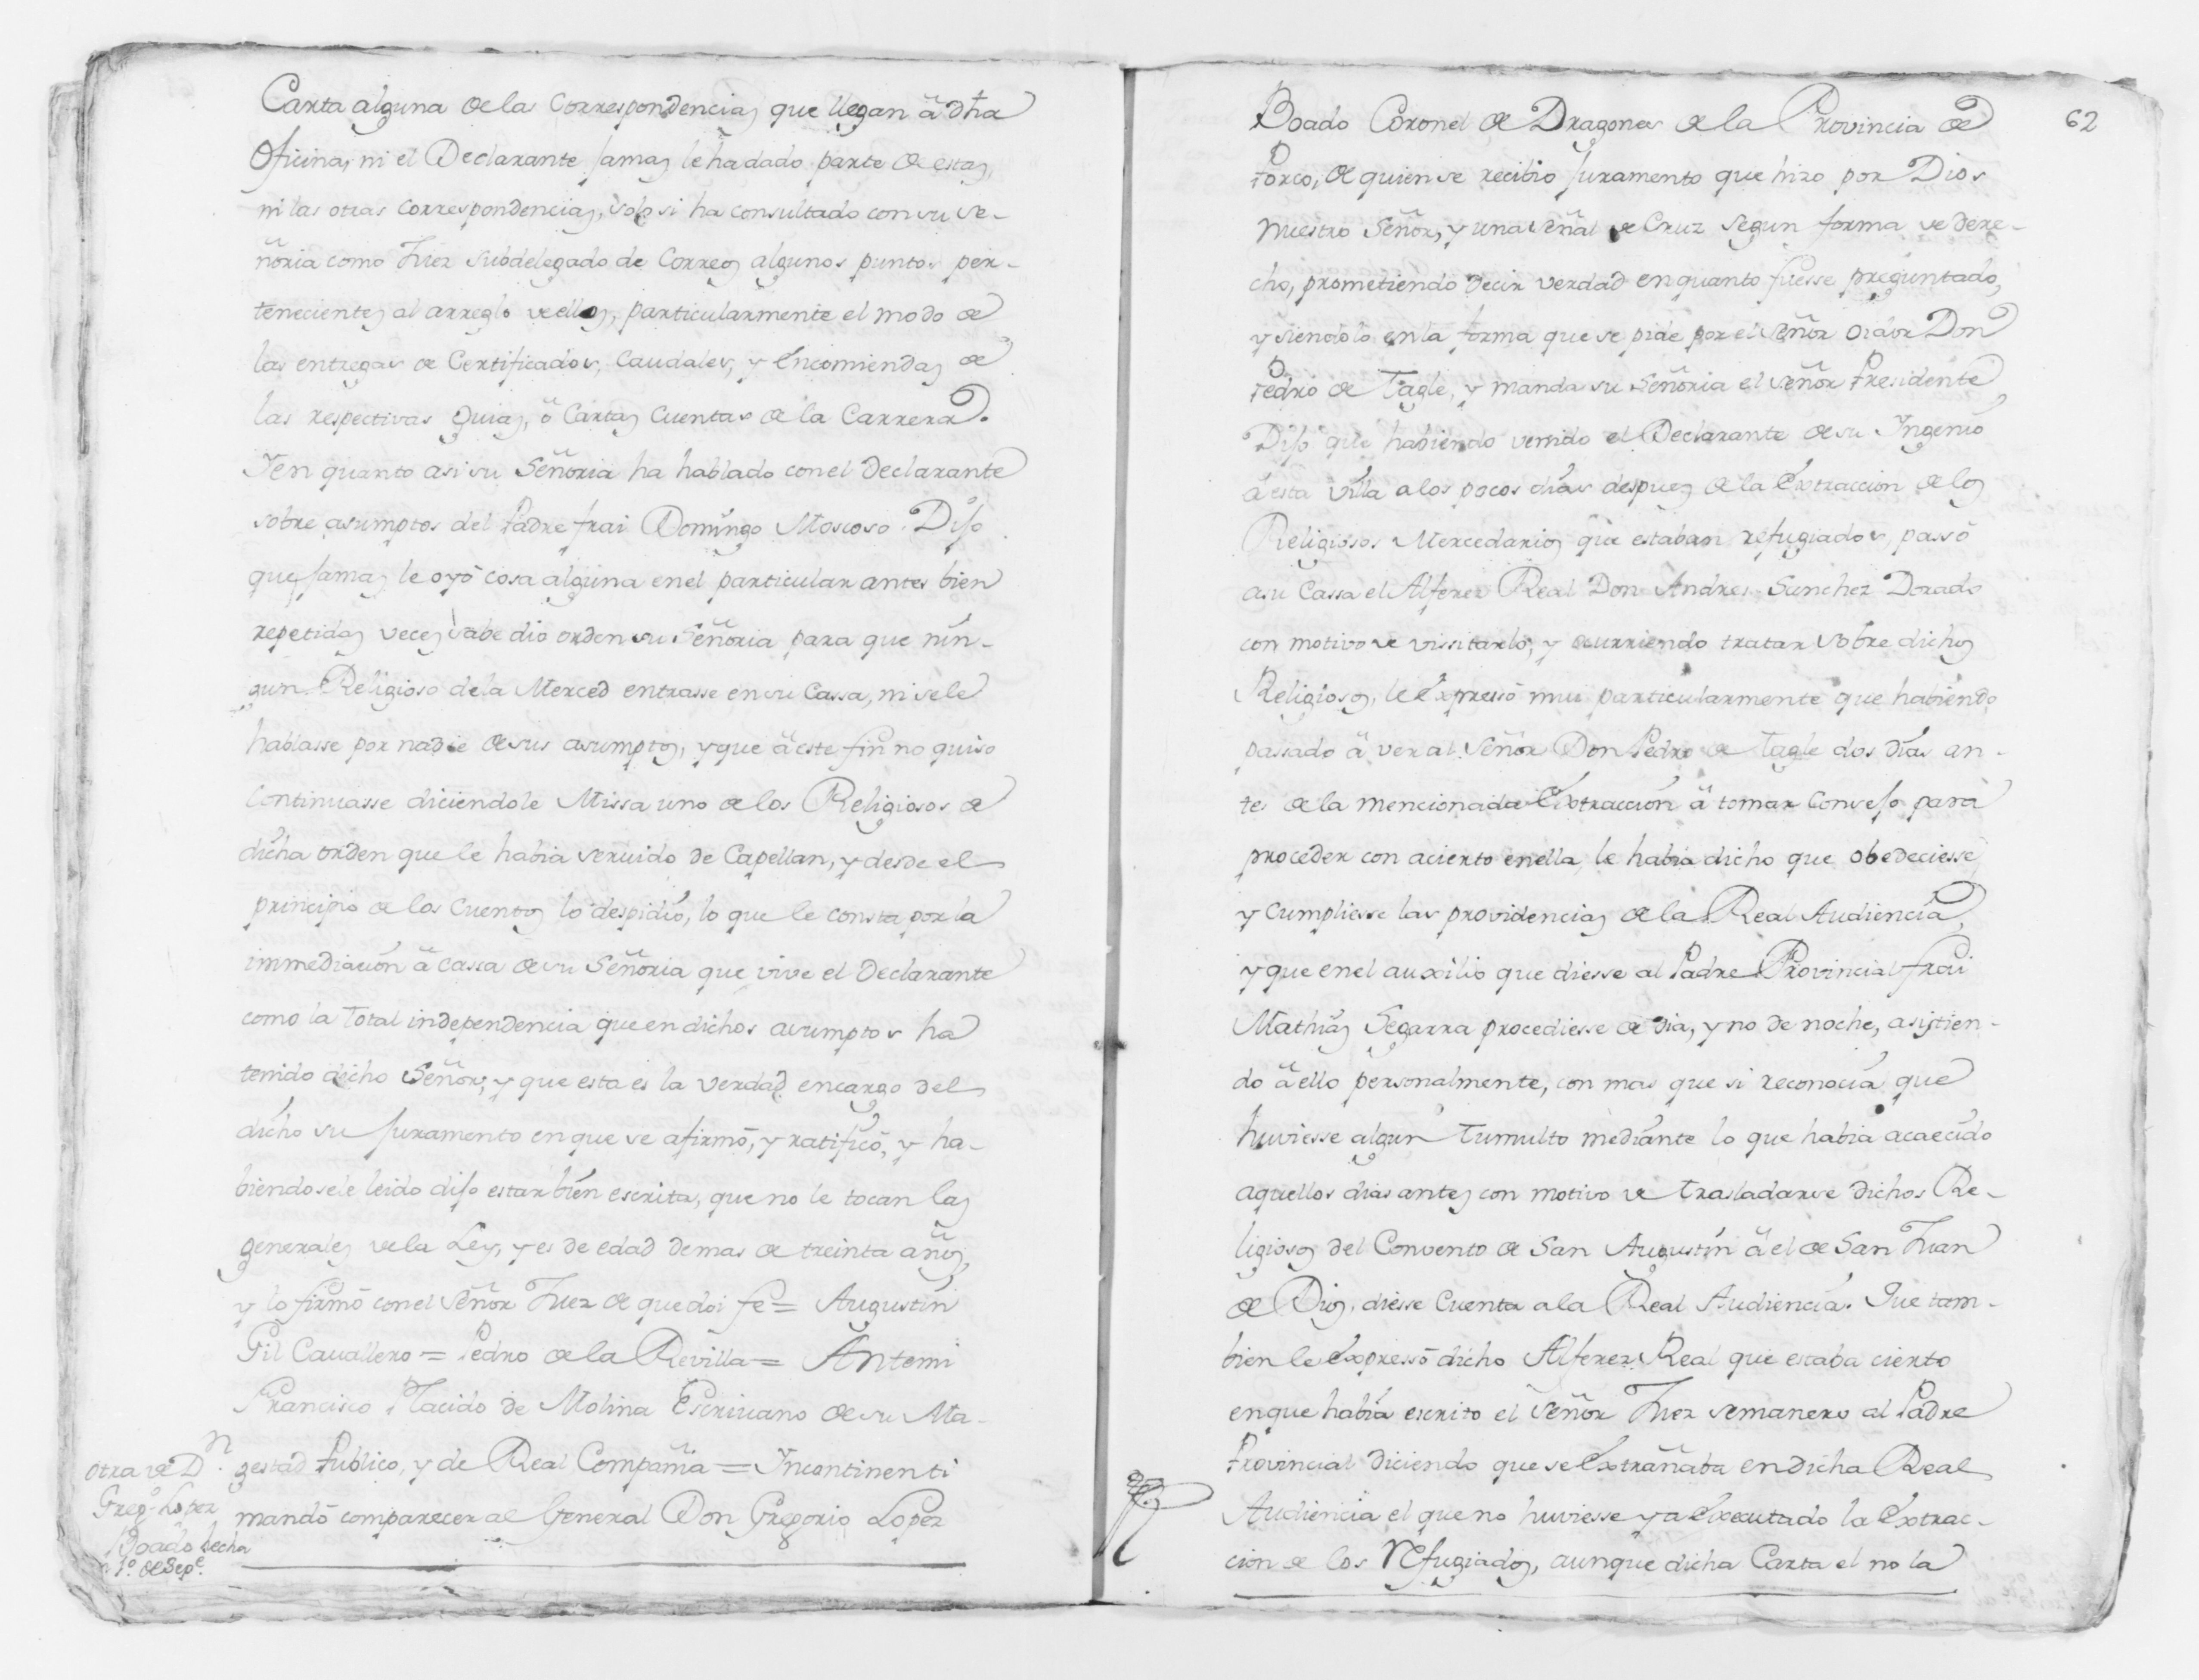 Carta alguna de las Correspondencias que llegan â dha
Oficina, ni el Declarante jamas le ha dado parte de estas,
ni las otras correspondencias, solo si ha consultado con su Se-
ñoria como Juez subdelegado de Correos algunos puntos per-
tenecientes al arreglo de ellos, particularmente el modo de
las entregas de Certificados, Caudales, y Encomiendas de
las respectivas Guias, ô Cartas Cuentas de la Carrera.
Y en quanto a si su Señoria ha hablado con el Declarante
sobre asumptos del Padre frai Domingo Moscoso. Dijo
que jamas le oyô cosa alguna en el particular antes bien
repetidas veces sabe dio orden su Señoria para que nin-
gun Religioso de la Merced entrasse en su Cassa, ni se le
hablasse por nadie de sus asumptos, y que â este fin no quiso
continuasse diciendole Missa uno de los Religiosos de
dicha orden que le habia servido de Capellan, y desde el
principio de los Cuentos lo despidiô, lo que le consta por la
immediacion â cassa de su Señoria que vive el Declarante
como la total independencia que en dichos asumptos ha
tenido dicho Señor, y que esta es la verdad encargo del
dicho su juramento en que se afirmô, y ratificô, y ha-
biendosele leido dijo estar bien escrita, que no le tocan las
generales de la Ley, y es de edad de mas de treinta años,
y lo firmô con el Señor Juez de que doi fe = Augustin
Gil Cavallero = Pedro de la Revilla = Antemi
Francisco Placido de Molina Escrivano de su Ma-
gestad Publico, y de Real Compañia = Yncontinenti
mandô comparecer al General Don Gregorio Lopez
otra de Dn.
Grego. Lopez
Boado hecha
1o. de Sepe.
62
Boado Coronel de Dragones de la Provincia de
Porco, de quien se recibio juramento que hizo por Dios
nuestro Señor, y una señal de Cruz segun forma de dere-
cho, prometiendo decir verdad en quanto fuesse preguntado,
y siendolo en la forma que se pide por el Señor Oidor Don
Pedro de Tagle, y manda su Señoria el Señor Presidente
Dijo que habiendo venido el Declarante de su Yngenio
â esta Villa a los pocos dias despues de la Extraccion de los
Religiosos Mercedarios que estaban refugiados, passô
a su Cassa el Alferez Real Don Andres Sanchez Dorado
con motivo de vissitarlo, y ocurriendo tratar sobre dichos
Religiosos, le Expressô mui particularmente que habiendo
passado â ver al Señor Don Pedro de Tagle dos dias an-
tes de la mencionada Extraccion â tomar Consejo para
proceder con acierto en ella, le habia dicho que obedeciesse
y Cumpliesse las providencias de la Real Audiencia,
y que en el auxilio que diesse al Padre Provincial frai
Mathias Segarra procediesse de dia, y no de noche, asistien-
do â ello personalmente, con mas que si reconocia que
huviesse algun Tumulto mediante lo que habia acaecido
aquellos dias antes con motivo de trasladarse dichos Re-
ligiosos del Convento de San Augustin â el de San Juan
de Dios, diesse Cuenta a la Real Audiencia. Que tam-
bien le Expressô dicho Alferez Real que estaba cierto
en que habia escrito el Señor Juez semanero al Padre
Provincial diciendo que se Extrañaba en dicha Real
Audiencia el que no huviesse ya Executado la Extrac-
cion de los Refugiados, aunque dicha Carta el no la